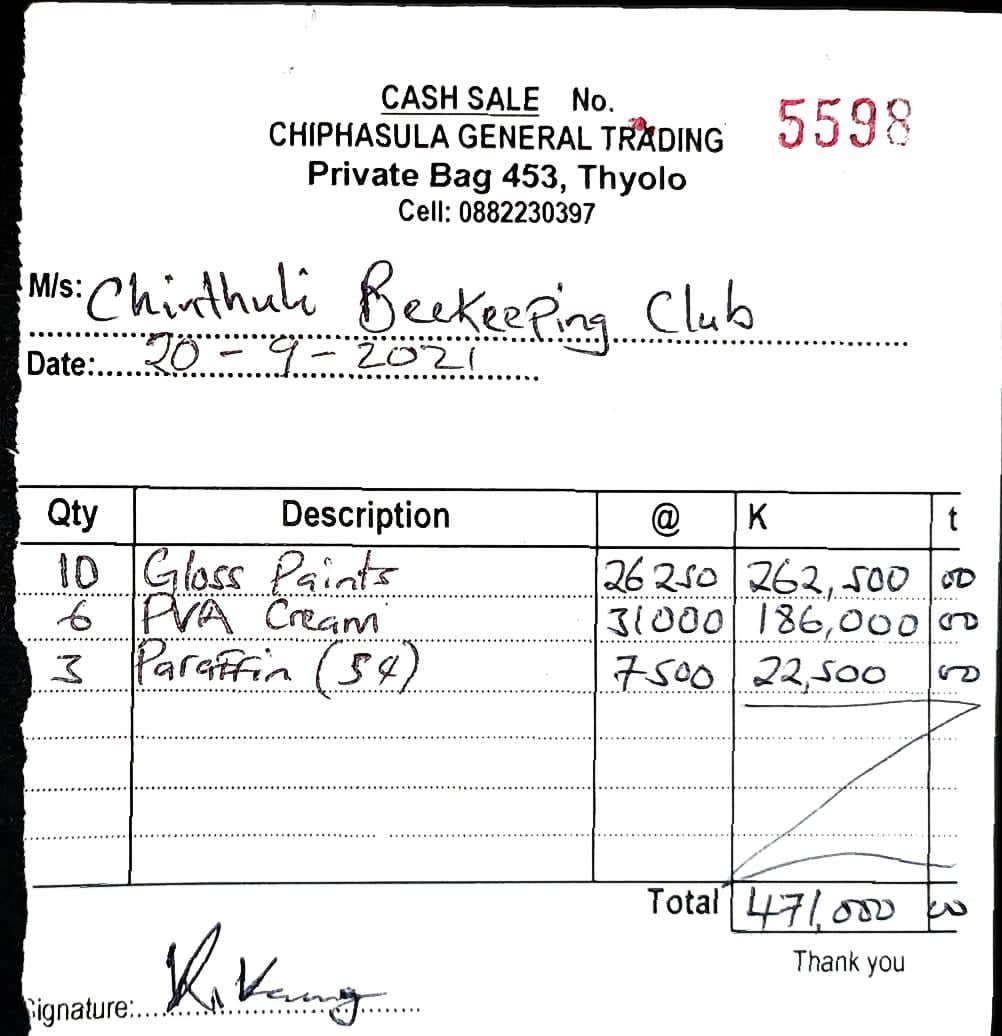 CASH SALE No. 5598
CHIPHASULA GENERAL TRADING
Private Bag 453, Thyolo
Cell: 0882230397
M/s: Chinthuli Beekeeping Club
Date: 20-9-2021
Qty Description @ K t
10 Gloss Paints 26250 262,500 00
6 PVA Cream 31000 186,000 00
3 Paraffin (5l) 7500 22,500 00
Total 471,000 00
Thank you
ignature: